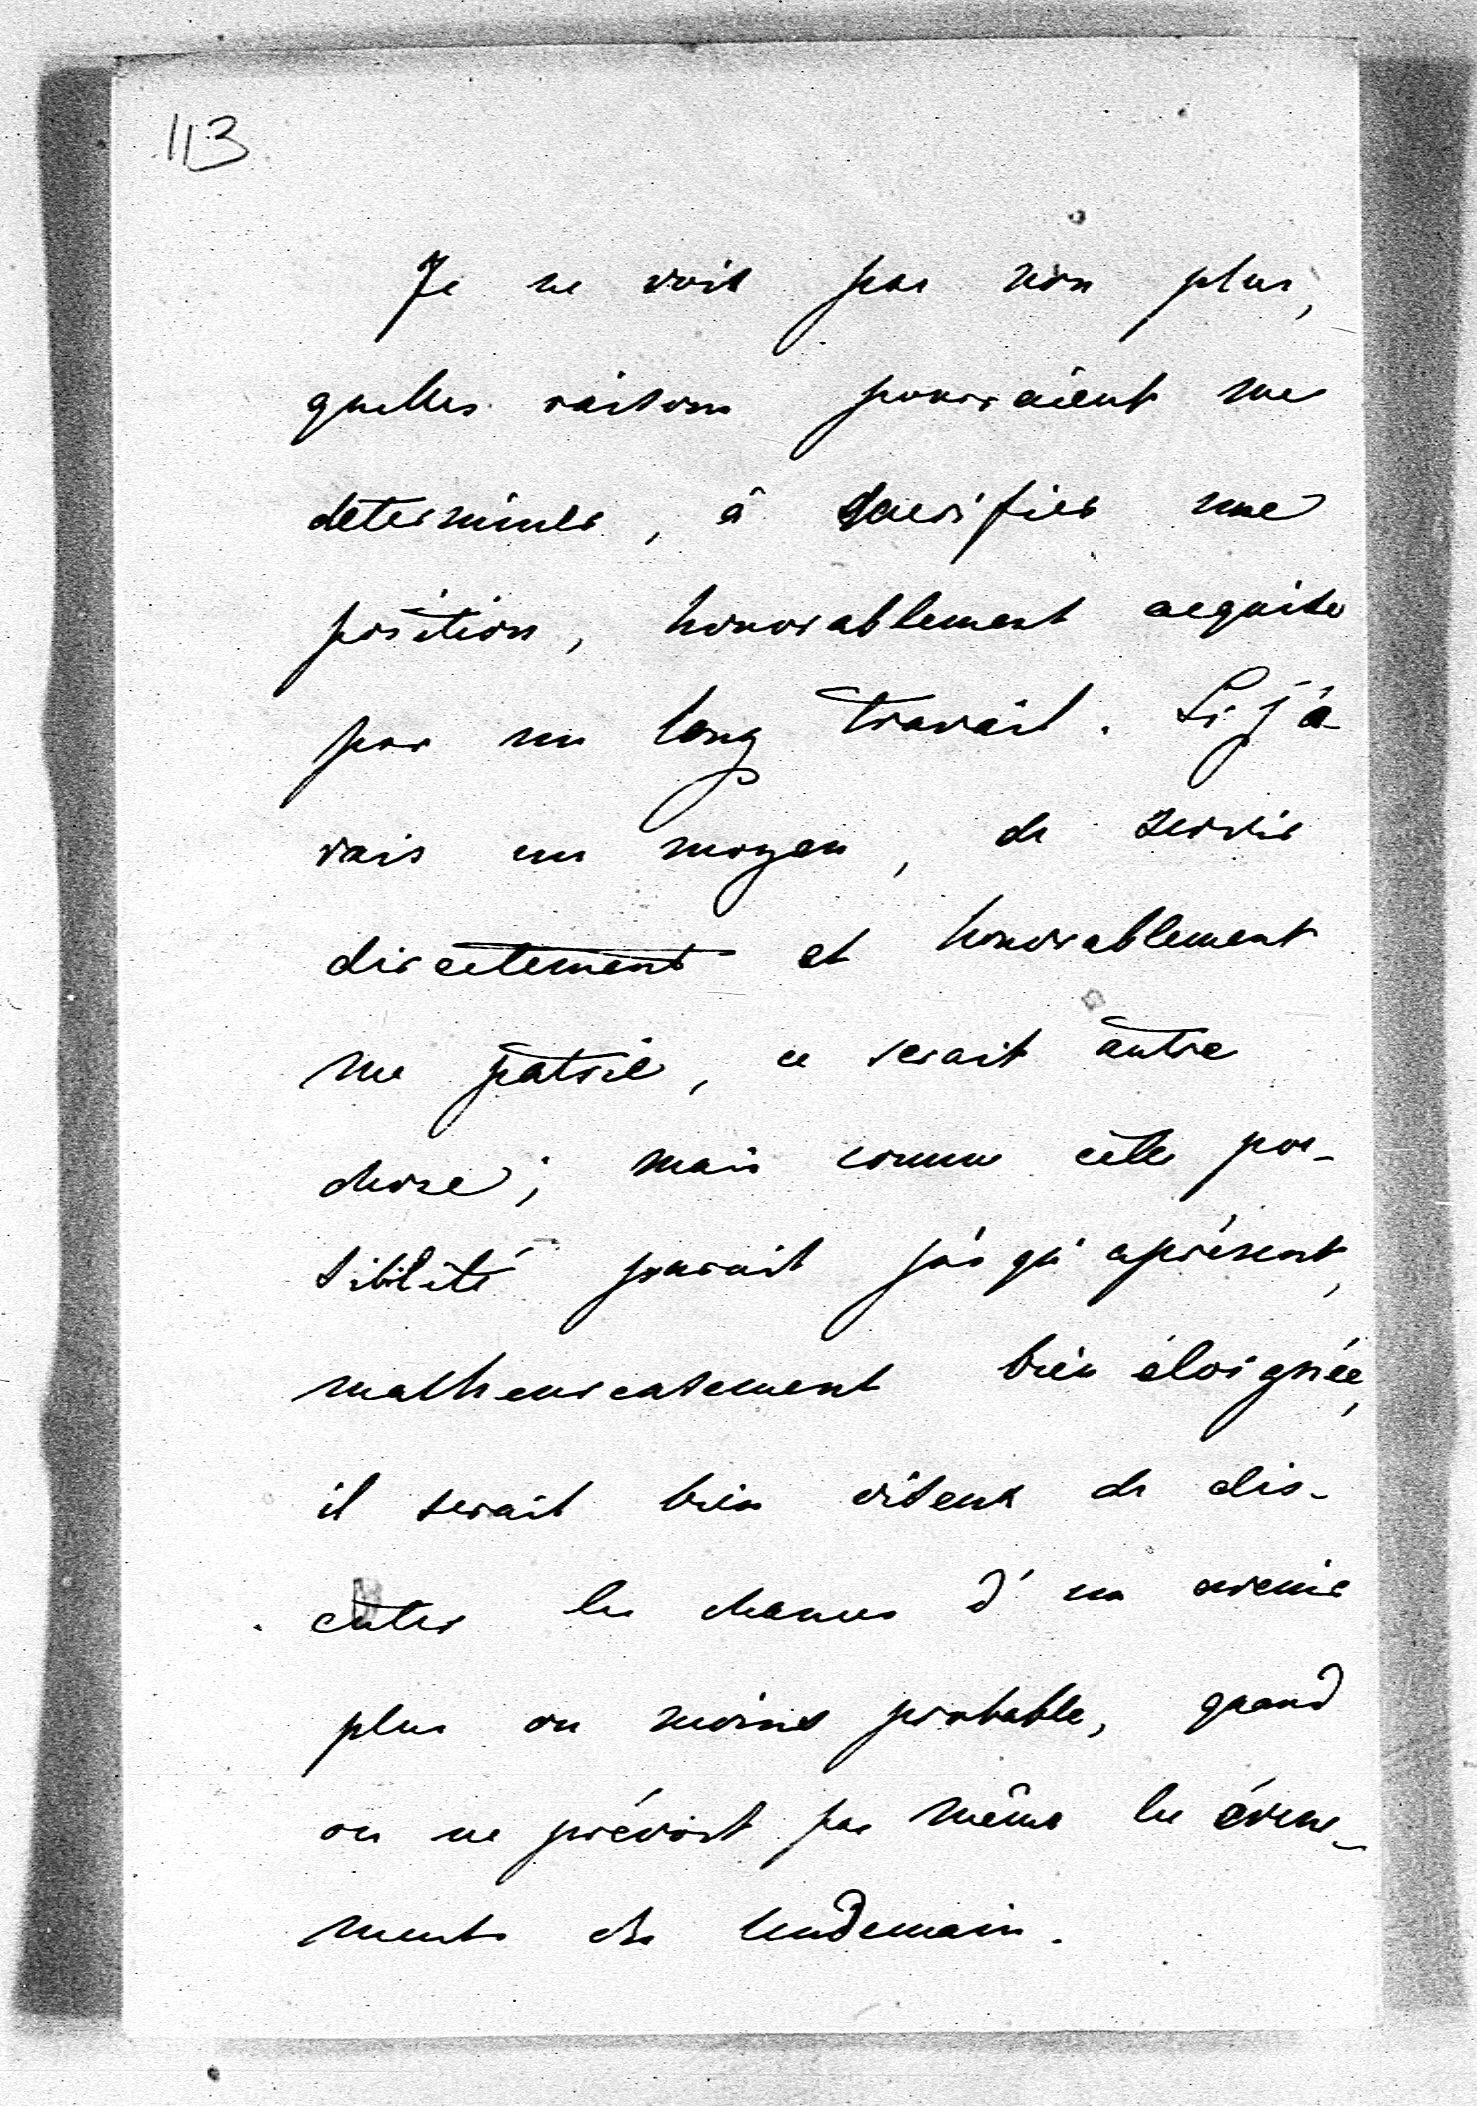 113
Je ne vois pas non plus,
quelles raisons pouvraient me
determiner, à sacrifier une
position, honorablement acquise
par un long travail. Si j'a
vais un moyen, de servir
directement et honorablement
ma patrie, ce serait autre
chose; mais comme cette pos-
sibilité parait jus qu'aprésent,
malheureusement bien éloignée,
il serait bien oiseux de dis-
cuter les chances d'un avenir
plus ou moins probable, quand
on ne prévoit pas même les évene-
ments du lendemain.